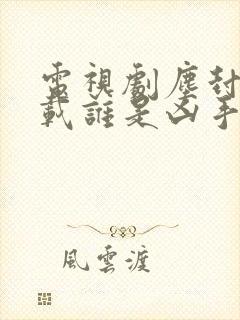 電視劇塵封
載誰是凶手
風雲渡